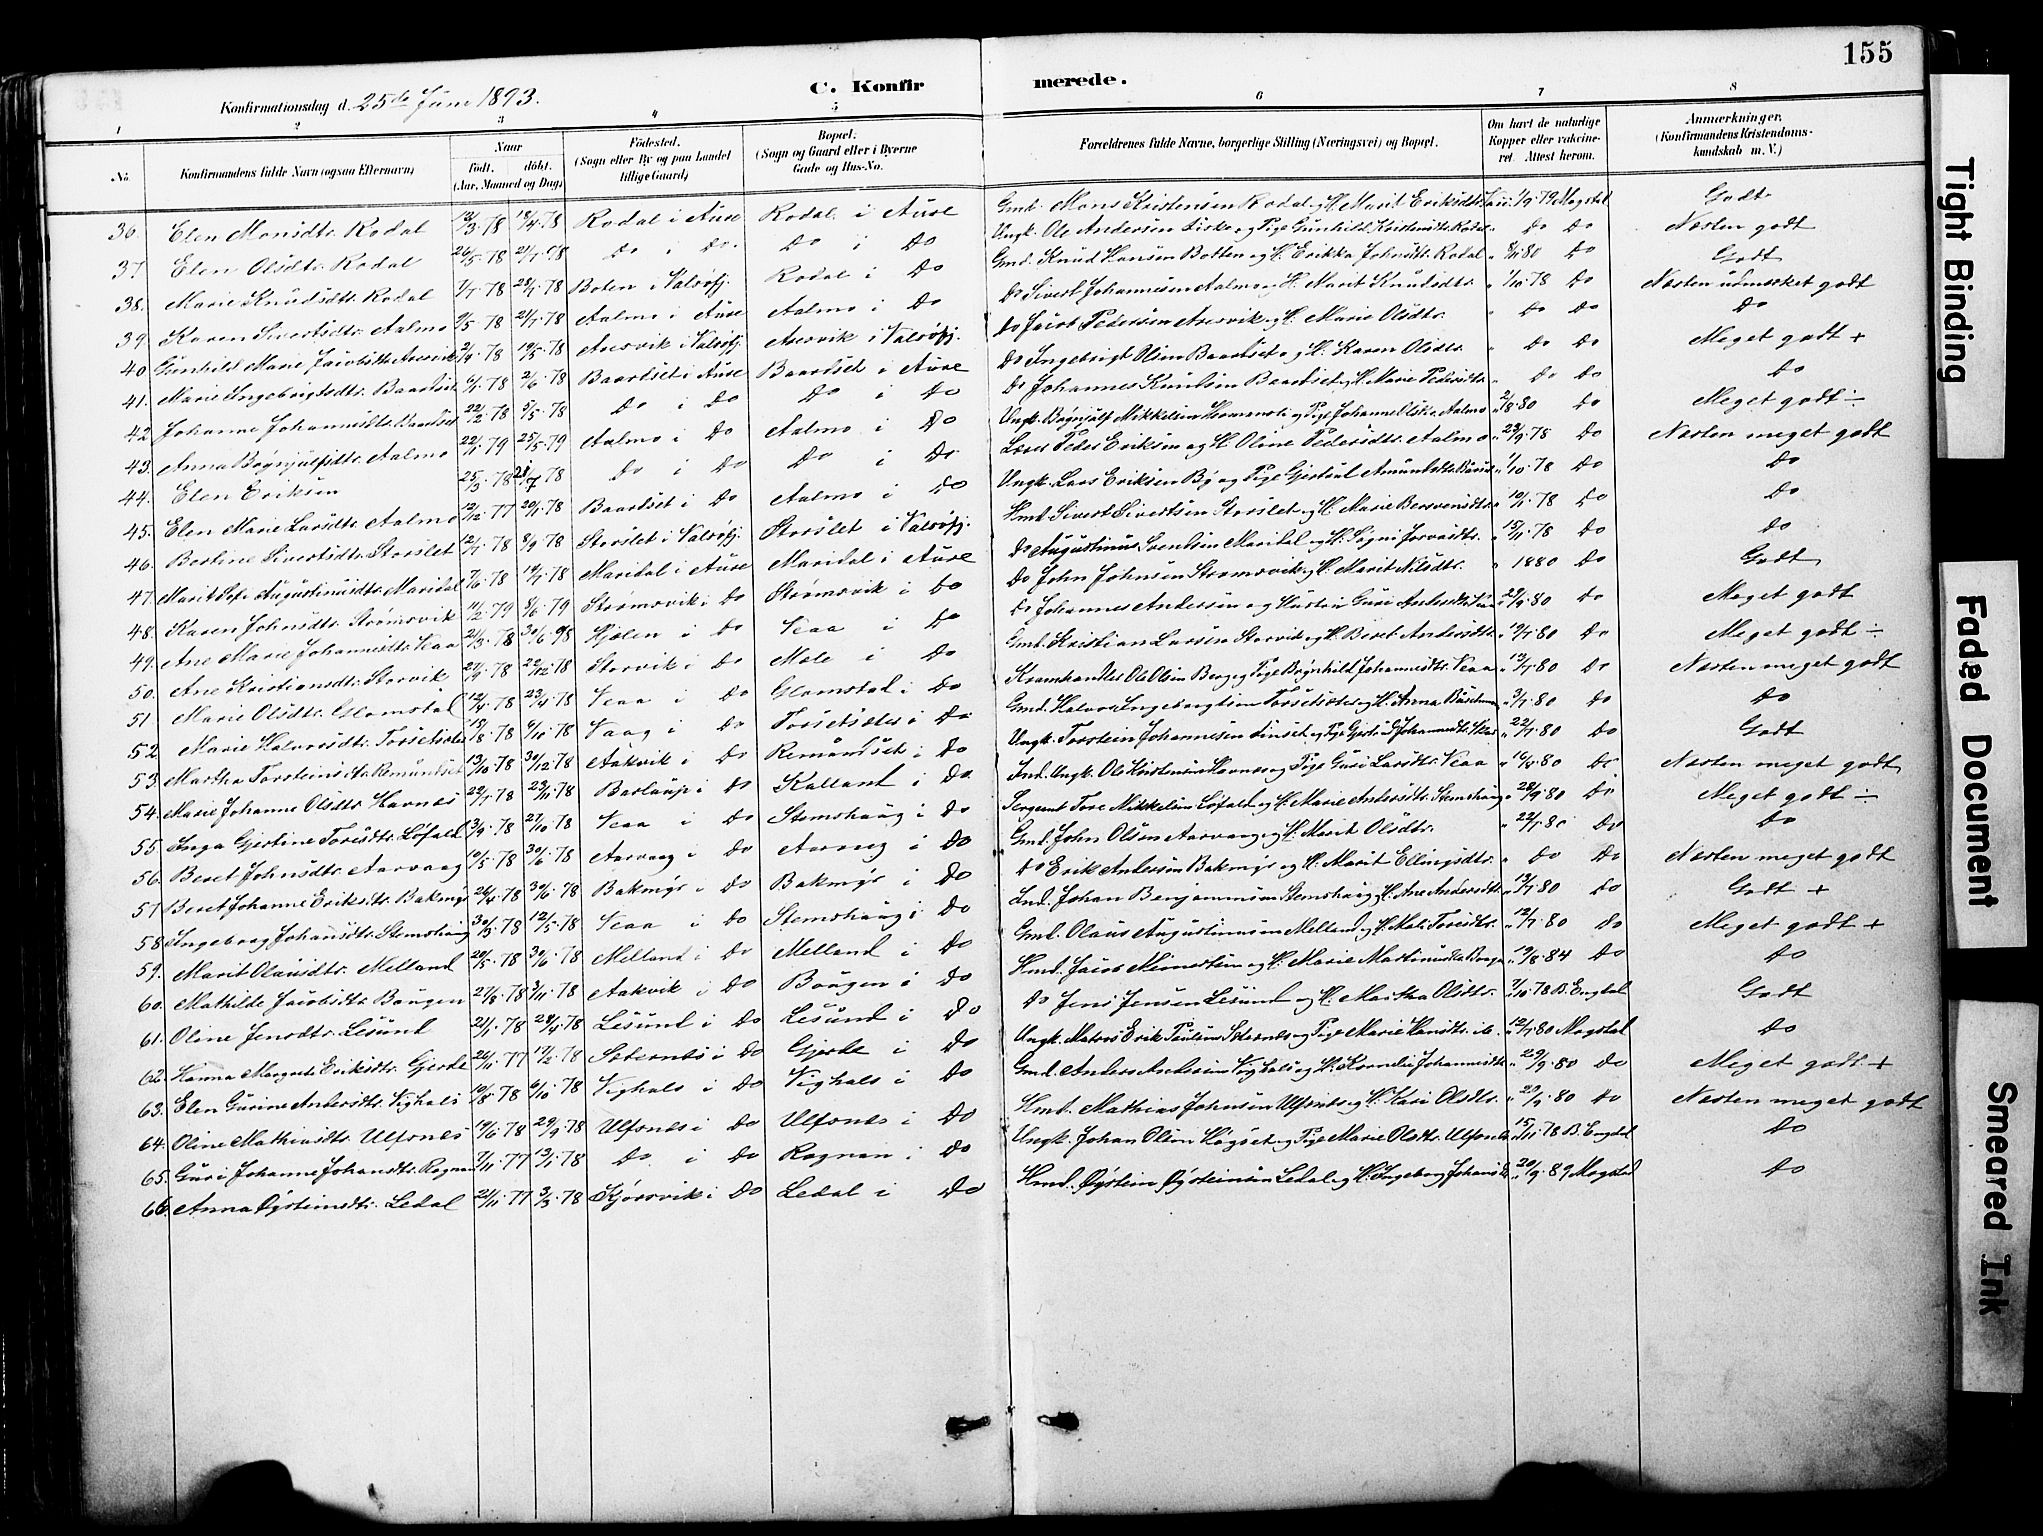 155
C. Konfirmerede.
Konfirmationsdag d. 25de Juni 1893.
1 2 3 4 5 6 7 8
No. Konfirmandens fulde Navn (ogsaa Efternavn) Naar født. døbt. (Aar, Maaned og Dag) Fødested. (Sogn eller By og paa Landet tillige Gaard) Bopæl. (Sogn og Gaard eller i Byerne Gade og Hus-No. Forældrenes fulde Navne, borgerlige Stilling (Næringsvei) og Bopæl. Om havt de naturlige Kopper eller vakcineret. Attest herom. Anmærkninger. (Konfirmandens Kristendomskundskab m. V.)
36. Elen Monsdtr. Rodal 12/3 78 18/4 78 Rodal i Aure Rodal i Aure Gmd. Mons Kristensen Rodal og H. Marit Eriksdtr. 1/9 79 Mogstad Godt
37. Elen Olsdtr. Rodal 26/5 78 21/7 78 Do i Do Do i Do Ungk. Ole Andersen Liske og Pige Gunhild Kristensdtr. Rodal Do Do Næsten godt
38. Marie Knudsdtr. Rodal 1/7 78 28/7 78 Boten i Valsøfj. Rodal i Do Gmd. Knud Hansen Botten og H. Erikka Johnsdtr. Rodal 8/11 80 Do Godt
39. Karen Sivertsdtr. Aalmo 9/5 78 21/7 78 Aalmo i Aure Aalmo i Do Do Sivert Johannesen Aalmo og H. Marit Knudsdtr. 1/10 78 Do Næsten udmærket godt
40 Gunhild Marie Jacobsdtr. Aresvik 2/4 78 19/5 78 Aresvik i Valsøfj. Aresvik i Valsøfj. Do Jacob Pedersen Aresvik og H. Marie Olsdtr. Do Do Do
41. Marie Ingebrigtsdtr. Baardset 6/1 78 2/6 78 Baardset i Aure Baardset i Aure Do Ingebrigt Olsen Baardset og H. Karen Olsdtr. Do Do Meget godt +
42 Johanne Johannesdtr. Baardset 22/2 78 5/5 78 Do i Do Do i Do Do Johannes Knudsen Baardset og H. Marie Pedersdtr. Do Do Do
43. Anna Bøgnjulfsdtr. Aalmo 22/1 79 25/5 79 Aalmo i Do Aalmo i Do Ungk. Bøgnjulf Mikkelsen og Pige Johanne Aalmo 2/8 80 Do Meget godt ÷
44. Elen Eriksen 25/3 78 21/7 78 Do i Do Do i Do Peder Eriksen og H. Oline Pedersdtr. Aalmo 23/9 78 Do Næsten meget godt
45. Elen Marie Larsdtr. Aalmo 12/12 77 20/1 78 Baardset i Do Aalmo i Do Ungk. Lars Eriksen Bø og Pige Gjertrud Amundsdtr. 1/10 78 Do Do
46. Bertine Sivertsdtr. Storslet 12/7 78 8/9 78 Storslet i Valsøfj. Storslet i Valsøfj. Hmd. Sivert Sivertsen Storslet og H. Marie Bersvensdtr. 10/1 78 Do Do
47. Marit Sofie Augustinusdtr. Maridal 7/6 78 14/7 78 Maridal i Aure Maridal i Aure Do Augustinus Svendsen Maridal og H. Signi 15/11 78 Do Do
48. Karen Johnsdtr. Strømsvik 11/2 79 8/6 79 Strømsvik i Do Strømsvik i Do Do John Johnsen Strømsvik og H. Marit Nilsdtr. 1880 Do Godt
49. Ane Marie Johannesdtr. Veaa 21/3 78 30/6 78 Hjelen i Do Veaa i Do Do Johannes Andersen og Hustru Guri Andersdtr. 29/9 80 Do Meget godt
50. Ane Kristiansdtr. Storvik 27/9 78 22/12 78 Storvik i Do Mole i Do Gmd. Kristian Larsen Storvik og H. Beret Andersdtr. 19/7 80 Do Meget godt ÷
51. Marie Olsdtr. Glomstad 12/4 78 23/4 78 Veaa i Do Glomstad i Do Kramhandler Ole Olsen Berg og Pige Bøgnhild Johannesdtr. Veaa 12/7 80 Do Næsten meget godt
52 Marie Halvorsdtr. Torsetsæter 15/8 78 6/10 78 Vaag i Do Torsetsæter i Do Gmd. Halvor Ingebrigtsen Torsetsæter og H. Anna 3/7 80 Do Do
53. Martha Torsteinsdtr. Remundset 13/10 78 30/12 78 Aakvik i Do Remundset i Do Ungk. Torstein Johannesen Linset og Pige Gjertrud Johannesdtr. 22/7 80 Do Godt
54. Marie Johanne Olsdtr. Havnes 22/7 78 23/11 78 Barlaup i Do Kalland i Do Ind. Ungk. Ole Kristensen Havnes og Pige Guri Larsdtr. Veaa 16/4 80 Do Næsten meget godt
55. Inga Gjertine Toresdtr. Løfald 3/9 78 27/10 78 Veaa i Do Stemshaug i Do Sergeant Tore Mikkelsen Løfald og H. Marie Andersdtr. Stemshaug 28/9 80 Do Meget godt ÷
56. Beret Johnsdtr. Aarvaag 10/5 78 30/6 78 Aarvaag i Do Aarvaag i Do Gmd. John Olsen Aarvaag og H. Marit Olsdtr. 22/7 80 Do Do
57 Beret Johanne Eriksdtr. Bakmyr 26/4 78 30/6 78 Bakmyr i Do Bakmyr i Do Do Erik Andersen Bakmyr og H. Marit Ellingsdtr. Do Do Næsten meget godt
58 Ingeborg Johansdtr. Stemshaug 30/3 78 12/5 78 Veaa i Do Stemshaug i Do Ind. Johan Benjaminsen Stemshaug og H. Ane Andersdtr. 13/7 80 Do Godt +
59. Marit Olausdtr. Melland 20/5 78 30/6 78 Melland i Do Melland i Do Gmd. Olaus Augustinusen Melland og H. Mali Toresdtr. 12/7 80 Do Meget godt +
60. Mathilde Jacobsdtr. Bøugen 27/8 78 3/11 78 Aakvik i Do Bøugen i Do Hmd. Jacob Meinertsen og H. Marie Martinusdtr. 19/8 84 Do Do
61. Oline Jensdtr. Lesund 21/1 78 28/4 78 Lesund i Do Lesund i Do Do Jens Jensen Lesund og H. Martha Olsdtr. 7/10 78 B. Engdal Godt
62 Hanna Margrete Eriksdtr. Gjerde 26/11 77 17/2 78 Sæternes i Do Gjerde i Do Ungk. Matros Erik Paulsen Sæternes og Pige Marie Hansdtr. ib. 12/7 80 Mogstad Do
63. Elen Gurine Andersdtr. Vighals 10/8 78 6/10 78 Vighals i Do Vighals i Do Gmd. Anders Andersen Vighals og H. Kornelia Johannesdtr. 29/9 80 Do Meget godt +
64. Oline Mathiasdtr. Ulfsnes 19/6 78 29/9 78 Ulfsnes i Do Ulfsnes i Do Hmd. Mathias Johnsen Ulfsnes og H. Kari Olsdtr. 29/9 80 Do Næsten meget godt
65. Guri Johanne Johansdtr. Rognan 7/11 77 13/1 78 Do i Do Rognan i Do Ungk. Johan Olsen Høgset og Pige Marie Olsdtr. Ulfsnes 15/11 78 B. Engdal Do
66. Anna Øysteinsdtr. Ledal 21/11 77 3/3 78 Kjørsvik i Do Ledal i Do Hmd. Øystein Øysteinsen Ledal og H. Ingeborg Johansdtr. 20/9 89 Mogstad Do
Tight Binding
Faded Document
Smeared Ink